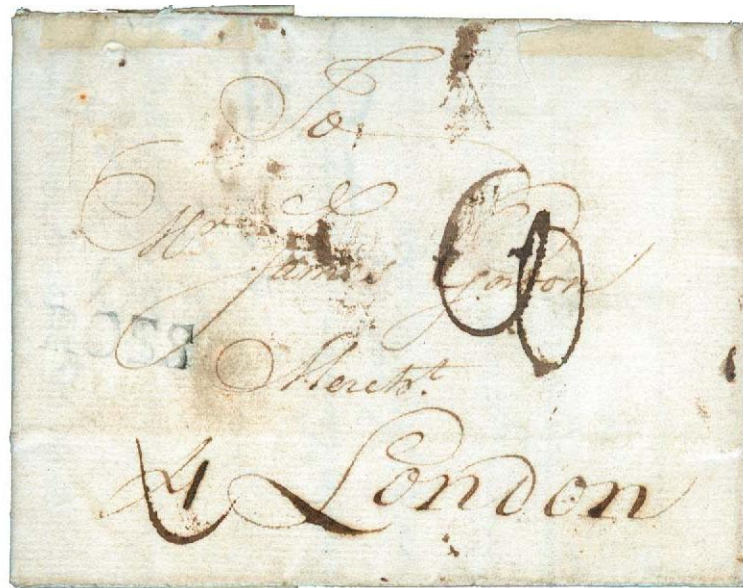 To
Mr. James Gordon
Mercht.
London